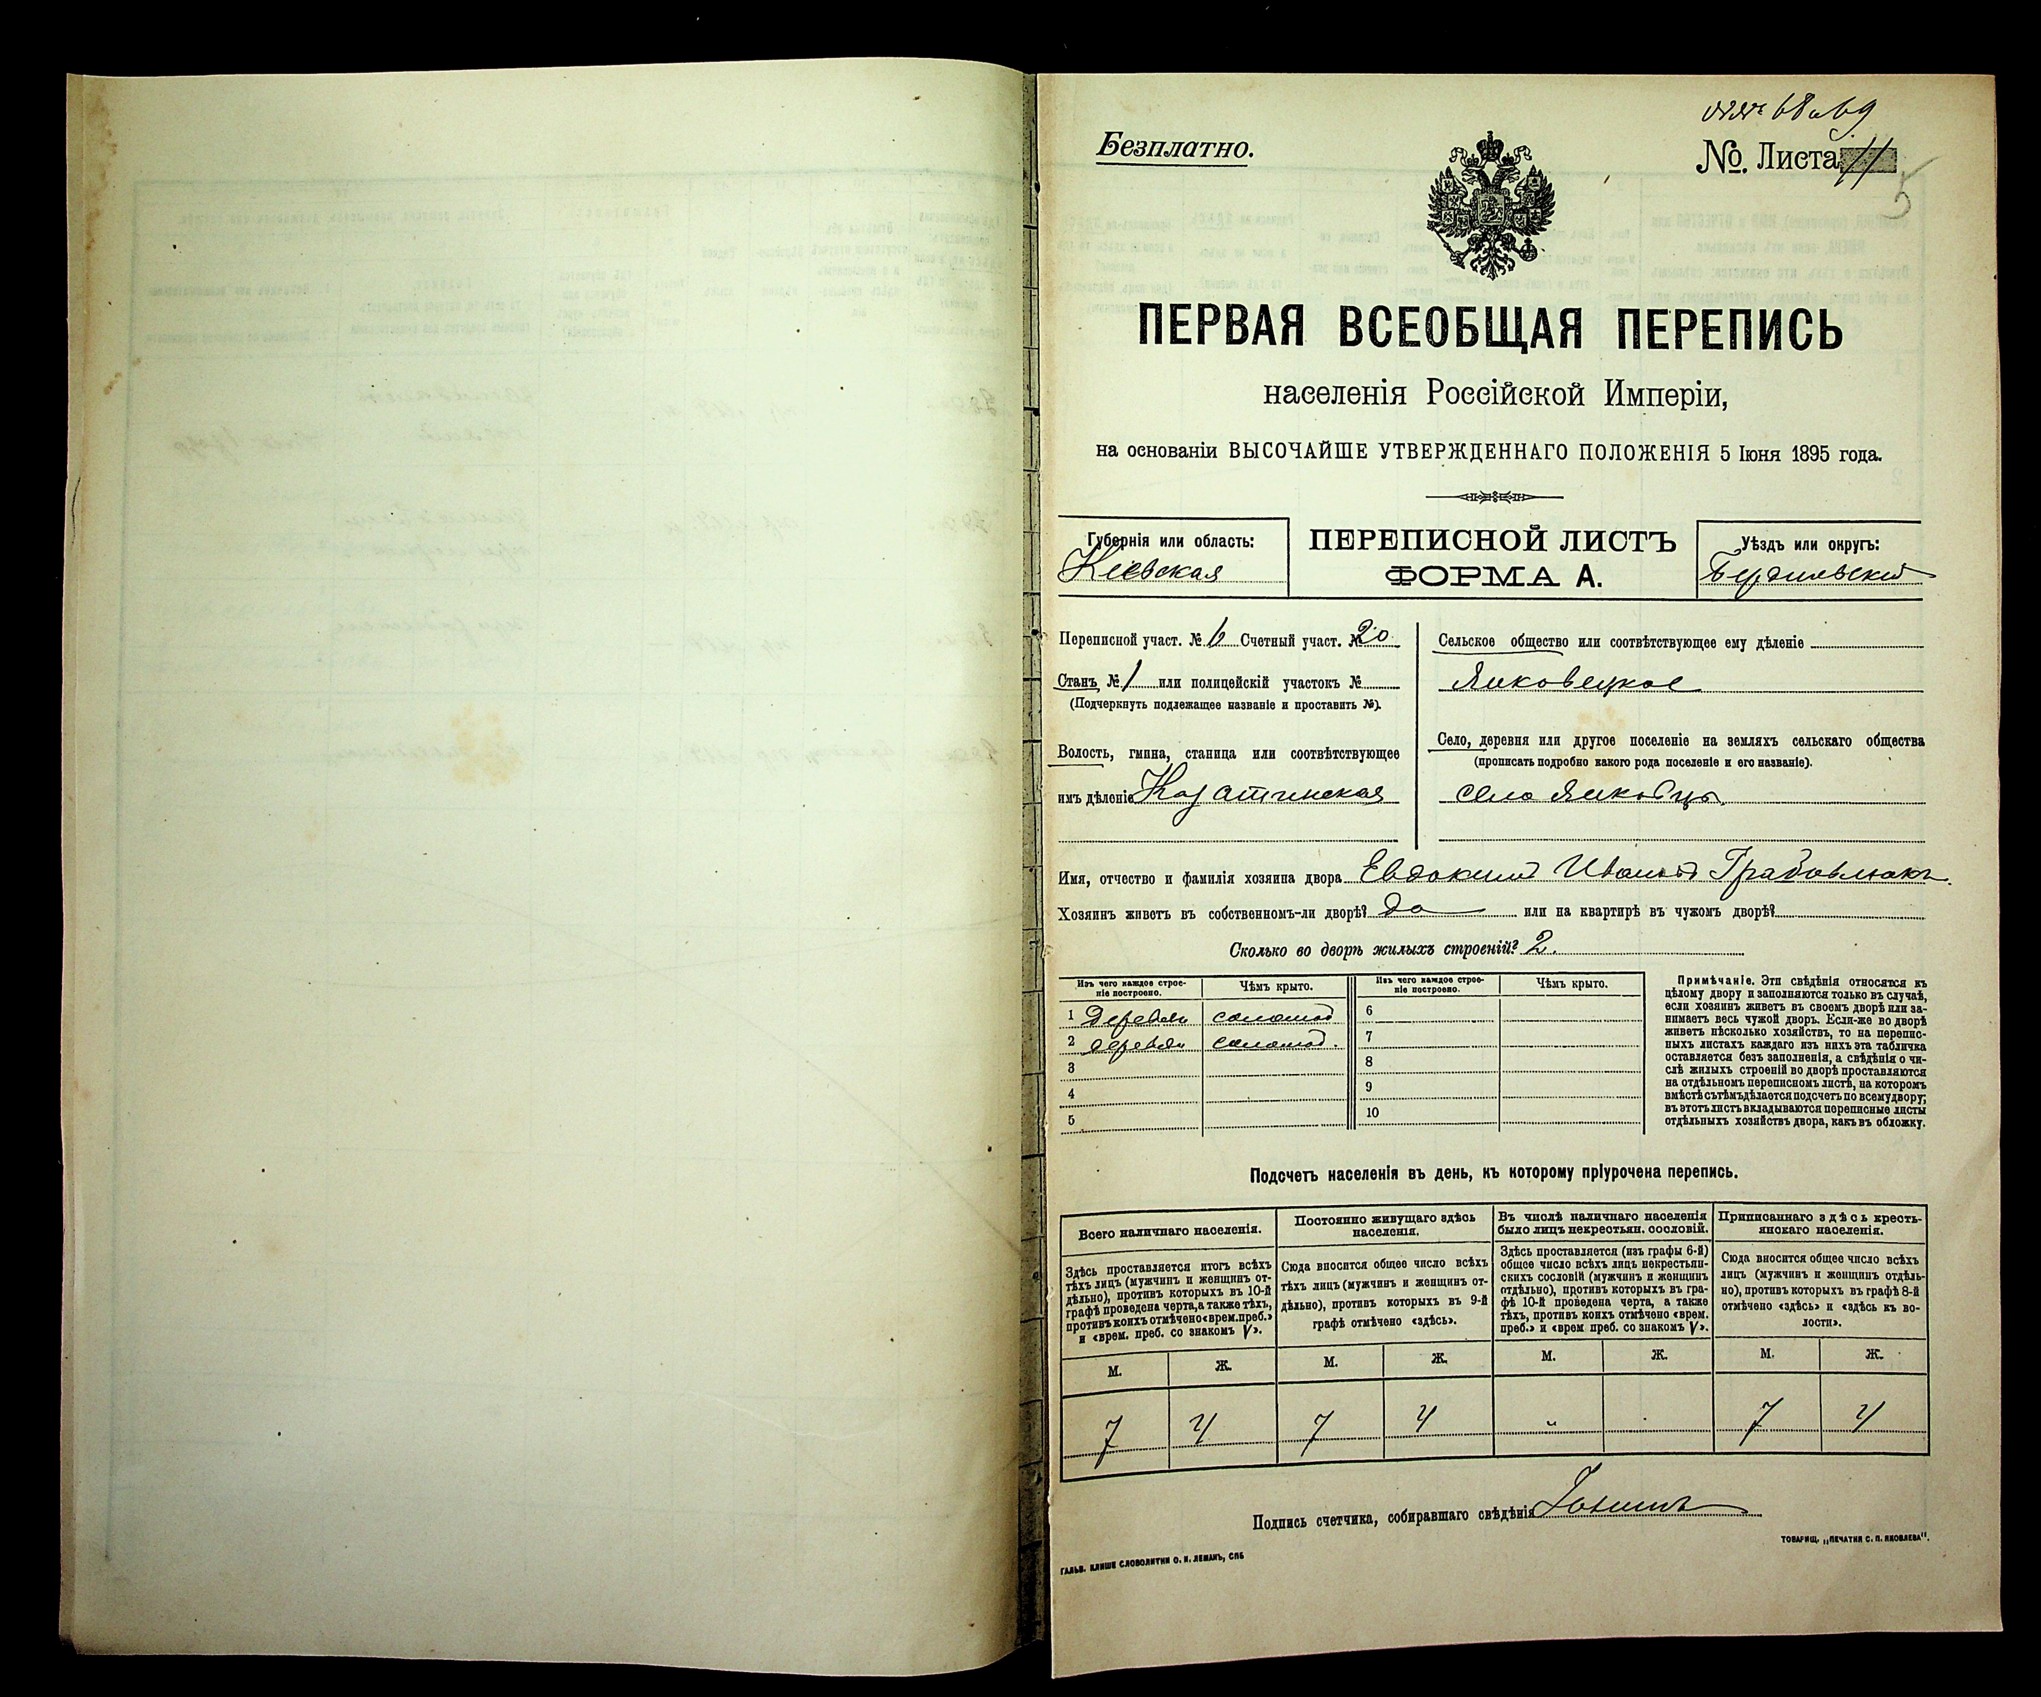 №№ 68 и 69
Безплатно.
№. Листа 11
5
ПЕРВАЯ ВСЕОБЩАЯ ПЕРЕПИСЬ
населенія Россійской Имперіи,
на основаніи ВЫСОЧАЙШЕ УТВЕРЖДЕННАГО ПОЛОЖЕНІЯ 5 Іюня 1895 года.
Губернія или область:
Кіевская
ПЕРЕПИСНОЙ ЛИСТЪ
ФОРМА А.
Уѣздъ или округъ:
Переписной участ. № 6 Счетный участ. № 20
Станъ № 1 или полицейскій участокъ №
(Подчеркнуть подлежащее названіе и проставить №).
Волость, гмина, станица или соотвѣтствующее
имъ дѣленіе
Сельское общество или соотвѣтствующее ему дѣленіе
Янковецкое
Село, деревня или другое поселеніе на земляхъ сельскаго общества
(прописать подробно какого рода поселеніе и его названіе).
село Янковцы.
Имя, отчество и фамилія хозяина двора Евдокимъ Ивановъ
Хозяинъ живетъ въ собственномъ-ли дворѣ? да или на квартирѣ въ чужомъ дворѣ?
Сколько во дворѣ жилыхъ строеній? 2.
Изъ чего каждое строе-
ніе построено.
Чѣмъ крыто.
Изъ чего каждое строе-
ніе построено.
Чѣмъ крыто.
1 деревян соломой 6
2 деревян соломой. 7
3 8
4 9
5 10
Примѣчаніе. Эти свѣдѣнія относятся къ
цѣлому двору и заполняются только въ случаѣ,
если хозяинъ живетъ въ своемъ дворѣ или за-
нимаетъ весь чужой дворъ. Если-же во дворѣ
живетъ нѣсколько хозяйствъ, то на перепис-
ныхъ листахъ каждаго изъ нихъ эта табличка
оставляется безъ заполненія, а свѣдѣнія о чи-
слѣ жилыхъ строеній во дворѣ проставляются
на отдѣльномъ переписномъ листѣ, на которомъ
вмѣстѣ съ тѣмъ дѣлается подсчетъ по всему двору;
въ этотъ листъ вкладываются переписные листы
отдѣльныхъ хозяйствъ двора, какъ въ обложку.
Подсчетъ населенія въ день, къ которому пріурочена перепись.
Всего наличнаго населенія.
Здѣсь проставляется итогъ всѣхъ
тѣхъ лицъ (мужчинъ и женщинъ от-
дѣльно), противъ которыхъ въ 10-й
графѣ проведена черта, а также тѣхъ,
противъ коихъ отмѣчено «врем. преб.»
и «врем. преб. со знакомъ V».
Постоянно живущаго здѣсь
населенія.
Сюда вносится общее число всѣхъ
тѣхъ лицъ (мужчинъ и женщинъ от-
дѣльно), противъ которыхъ въ 9-й
графѣ отмѣчено «здѣсь».
Въ числѣ наличнаго населенія
было лицъ некрестьян. сословій.
Здѣсь проставляется (изъ графы 6-й)
общее число всѣхъ лицъ некрестьян-
скихъ сословій (мужчинъ и женщинъ
отдѣльно), противъ которыхъ въ гра-
фѣ 10-й проведена черта, а также
тѣхъ, противъ коихъ отмѣчено «врем.
преб.» и «врем преб. со знакомъ V».
Приписаннаго здѣсь кресть-
янскаго населенія.
Сюда вносится общее число всѣхъ
лицъ (мужчинъ и женщинъ отдѣль-
но), противъ которыхъ въ графѣ 8-й
отмѣчено «здѣсь» и «здѣсь къ во-
лости».
М. Ж. М. Ж. М. Ж. М. Ж.
7 4 7 4 „ . 7 4
Подпись счетчика, собиравшаго свѣдѣнія
ГАЛЬВ. КЛИШЕ СЛОВОЛИТНИ О. И. ЛЕМАНЪ, СПБ
ТОВАРИЩ. „ПЕЧАТНЯ С. П. ЯКОВЛЕВА".